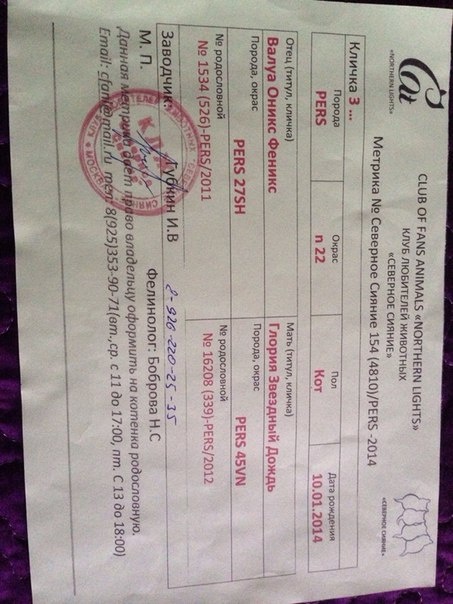 Cat
«NORTHERN LIGHTS»
CLUB OF FANS ANIMALS «NORTHERN LIGHTS»
КЛУБ ЛЮБИТЕЛЕЙ ЖИВОТНЫХ
«СЕВЕРНОЕ СИЯНИЕ»
«СЕВЕРНОЕ СИЯНИЕ»
Метрика № Северное Сияние 154 (4810)/PERS -2014
Кличка З ...
Порода Окрас Пол Дата рождения
PERS n 22 Кот 10.01.2014
Отец (титул, кличка) Мать (титул, кличка)
Валуа Оникс Феникс Глория Звездный Дождь
Порода, окрас Порода, окрас
PERS 27SH PERS 45VN
№ родословной № родословной
№ 1534 (526)-PERS/2011 № 16208 (339)-PERS/2012
8-926-220-25-35
Заводчик Губкин И.В Фелинолог: Боброва Н.С
М. П.
Данная метрика дает право владельцу оформить на котенка родословную.
Email: cfanl@mail.ru тел: 8(925)353-90-71(вт.,ср. с 11 до 17:00, пт. С 13 до 18:00)